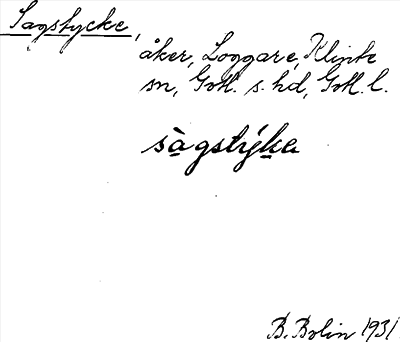 Sagstycke,
åker, Loggare, Klinte
sn, Gotl. s. hd, Gotl. l.
sàgstýka
B. Bolin 1931